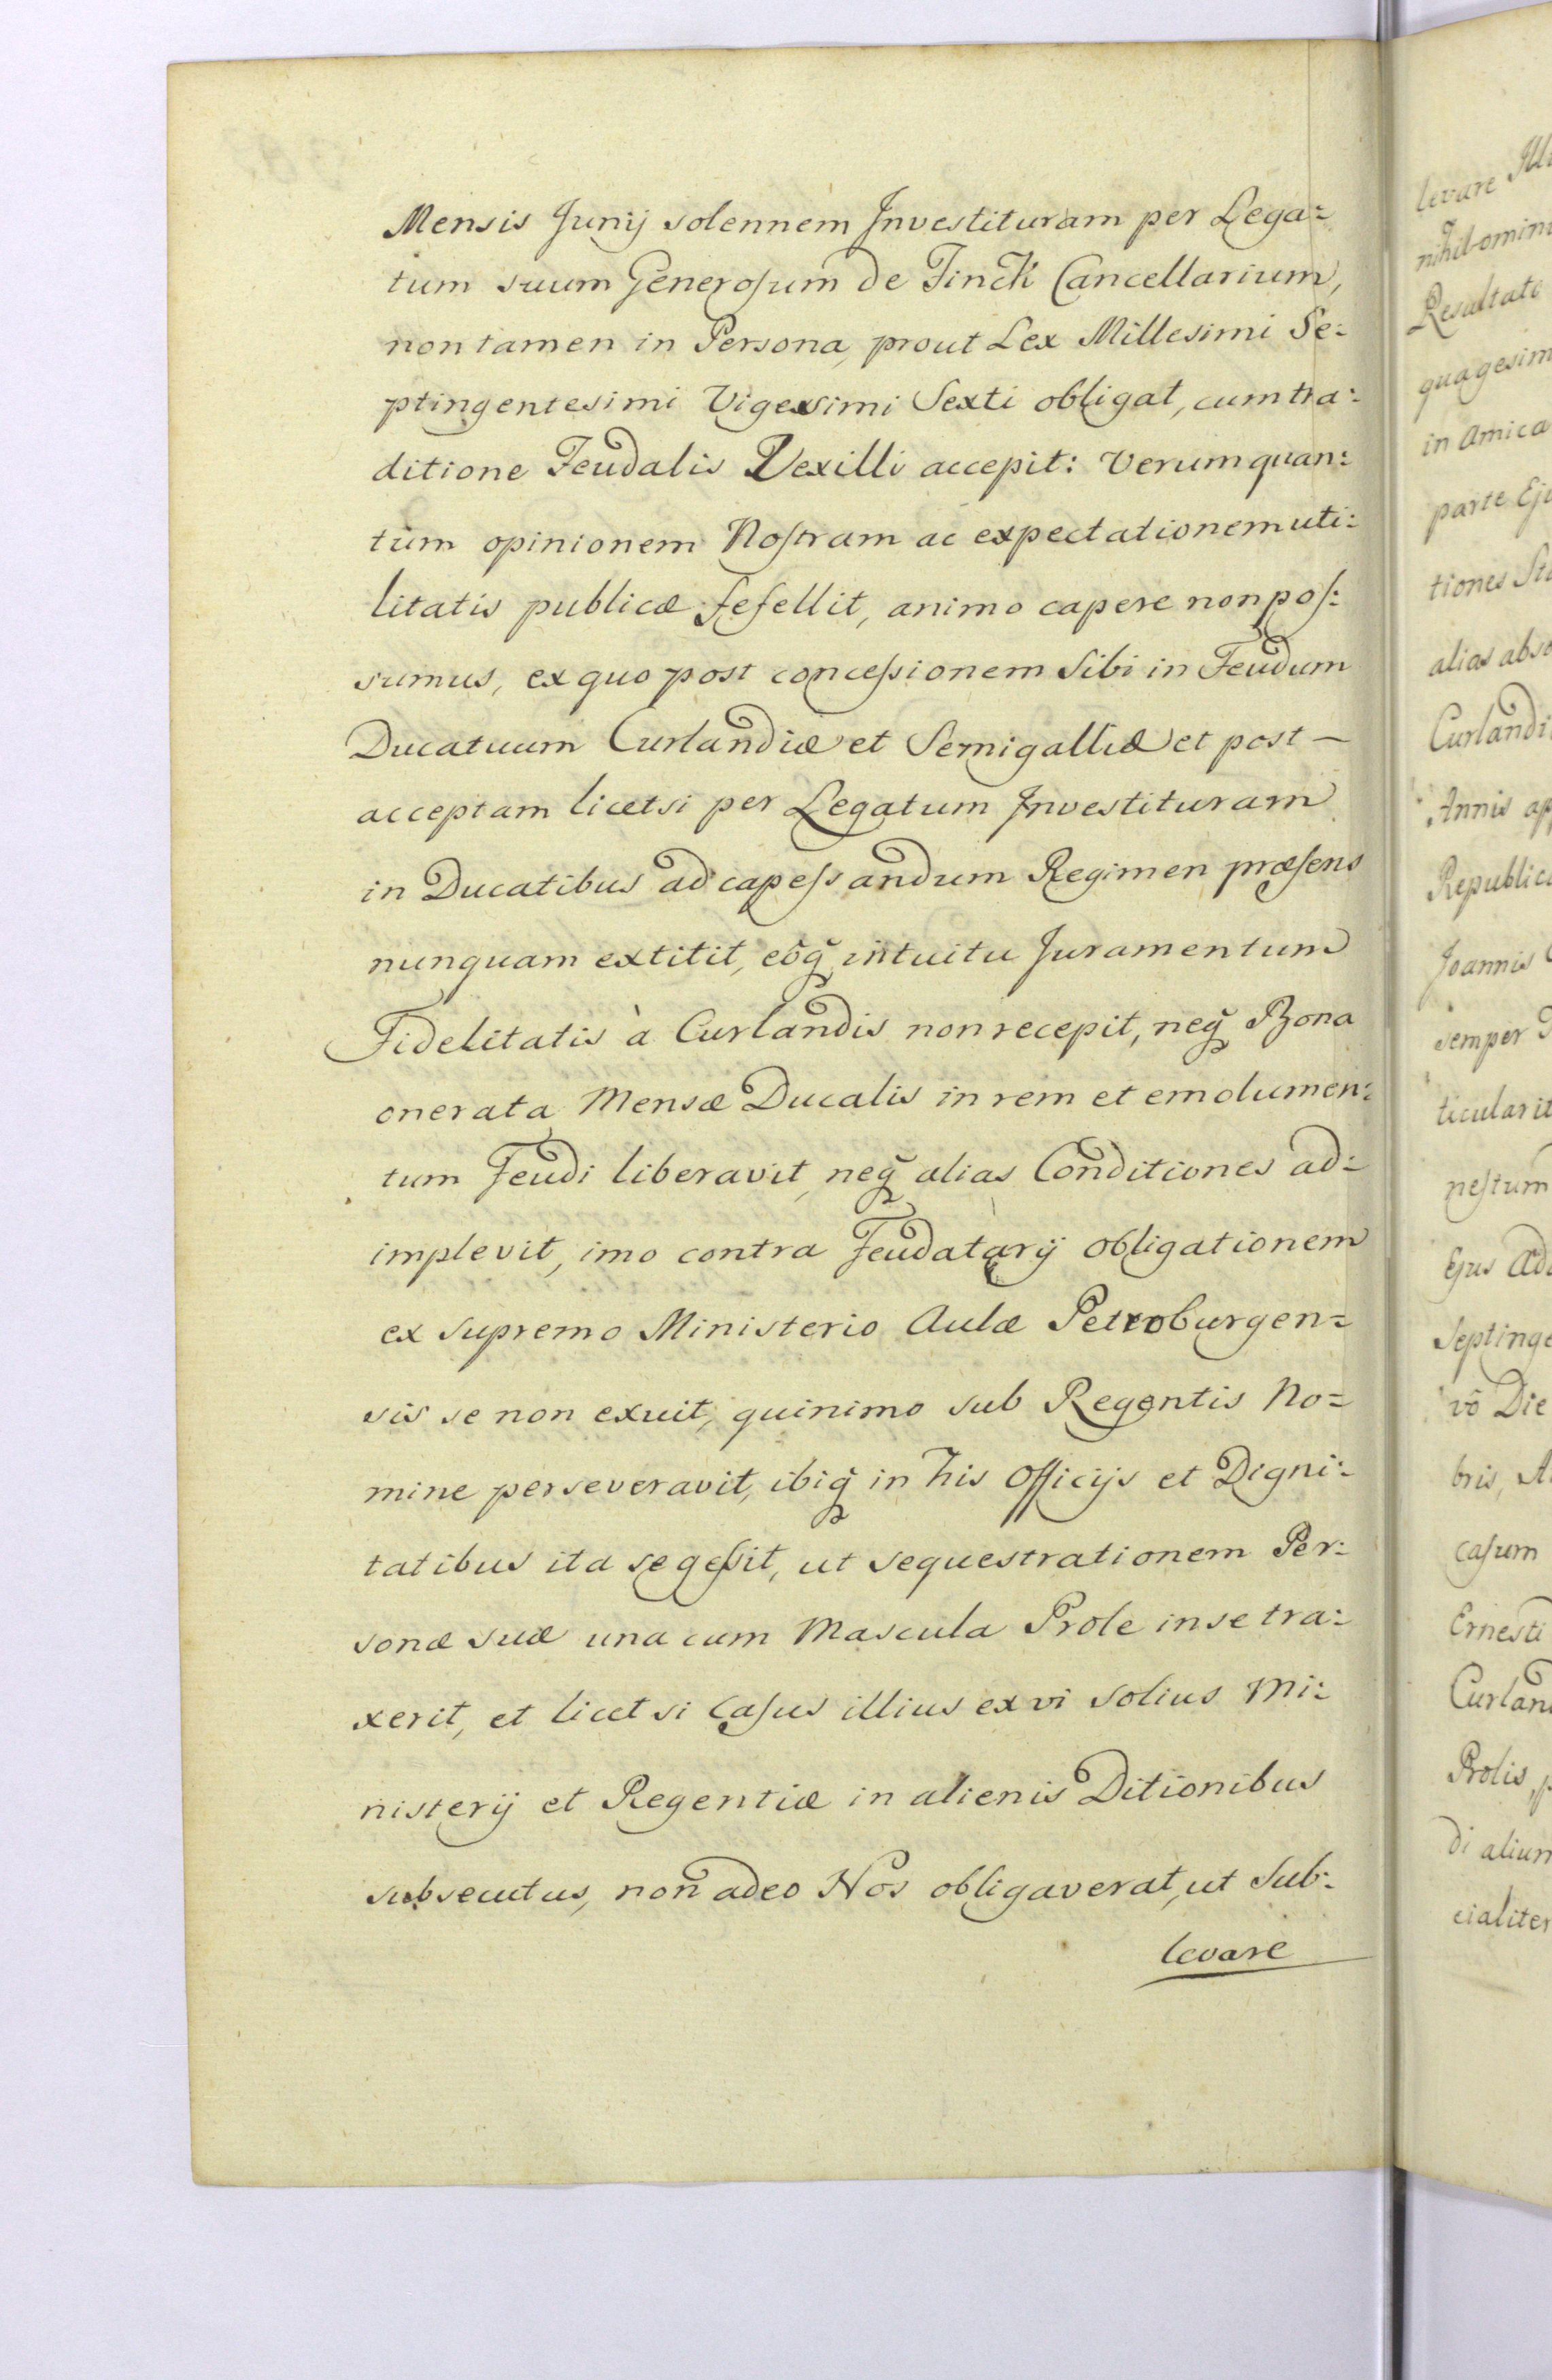 Mensis Junij solennem Investituram per Lega=
tum suum Generosum de Finck Cancellarium,
non tamen in Persona, prout Lex Millesimi Se=
ptingentesimi Vigesimi Sexti obligat, cum tra=
ditione Feudalis Vexilli accepit: Verum quan=
tum opinionem Nostram ac expectationem uti=
litatis publicæ fefellit, animo capere non pos=
sumus, ex quo post concessionem Sibi in Feudum
Ducatuum Curlandiæ et Semigalliæ et post —
acceptam licetsi per Legatum Investituram
in Ducatibus ad capessandum Regimen præsens
nunquam extitit, eoq̃ intuitu Juramentum
Fidelitatis à Curlandis non recepit, neq̃ Bona
onerata Mensæ Ducalis in rem et emolumen=
tum Feudi liberavit, neq̃ alias Conditiones ad=
implevit, imo contra Feudatarij obligationem
ex supremo Ministerio Aulæ Petroburgen=
sis se non exuit, quinimo sub Regentis No=
mine perseveravit, ibiq̃ in his Officijs et Digni=
tatibus ita se gessit, ut sequestrationem Per=
sonæ suæ una cum Mascula Prole in se tra=
xerit, et licet si Casus illius ex vi solius Mi=
nisterij et Regentiæ in alienis Ditionibus
subsecutus, non adeo Nos obligaverat, ut Sub=
levare
levare
nihilomin
Resultati
quagesim
in Amica
parte Ej
tiones
alias abs
Curlandi
Annis ap
Republic
Joannis
semper
ticularit
nestum
Ejus Ad
Septinge
vô Die
bris,
casum
Ernesti
Curlan
Prolis,
di alium
cialiter